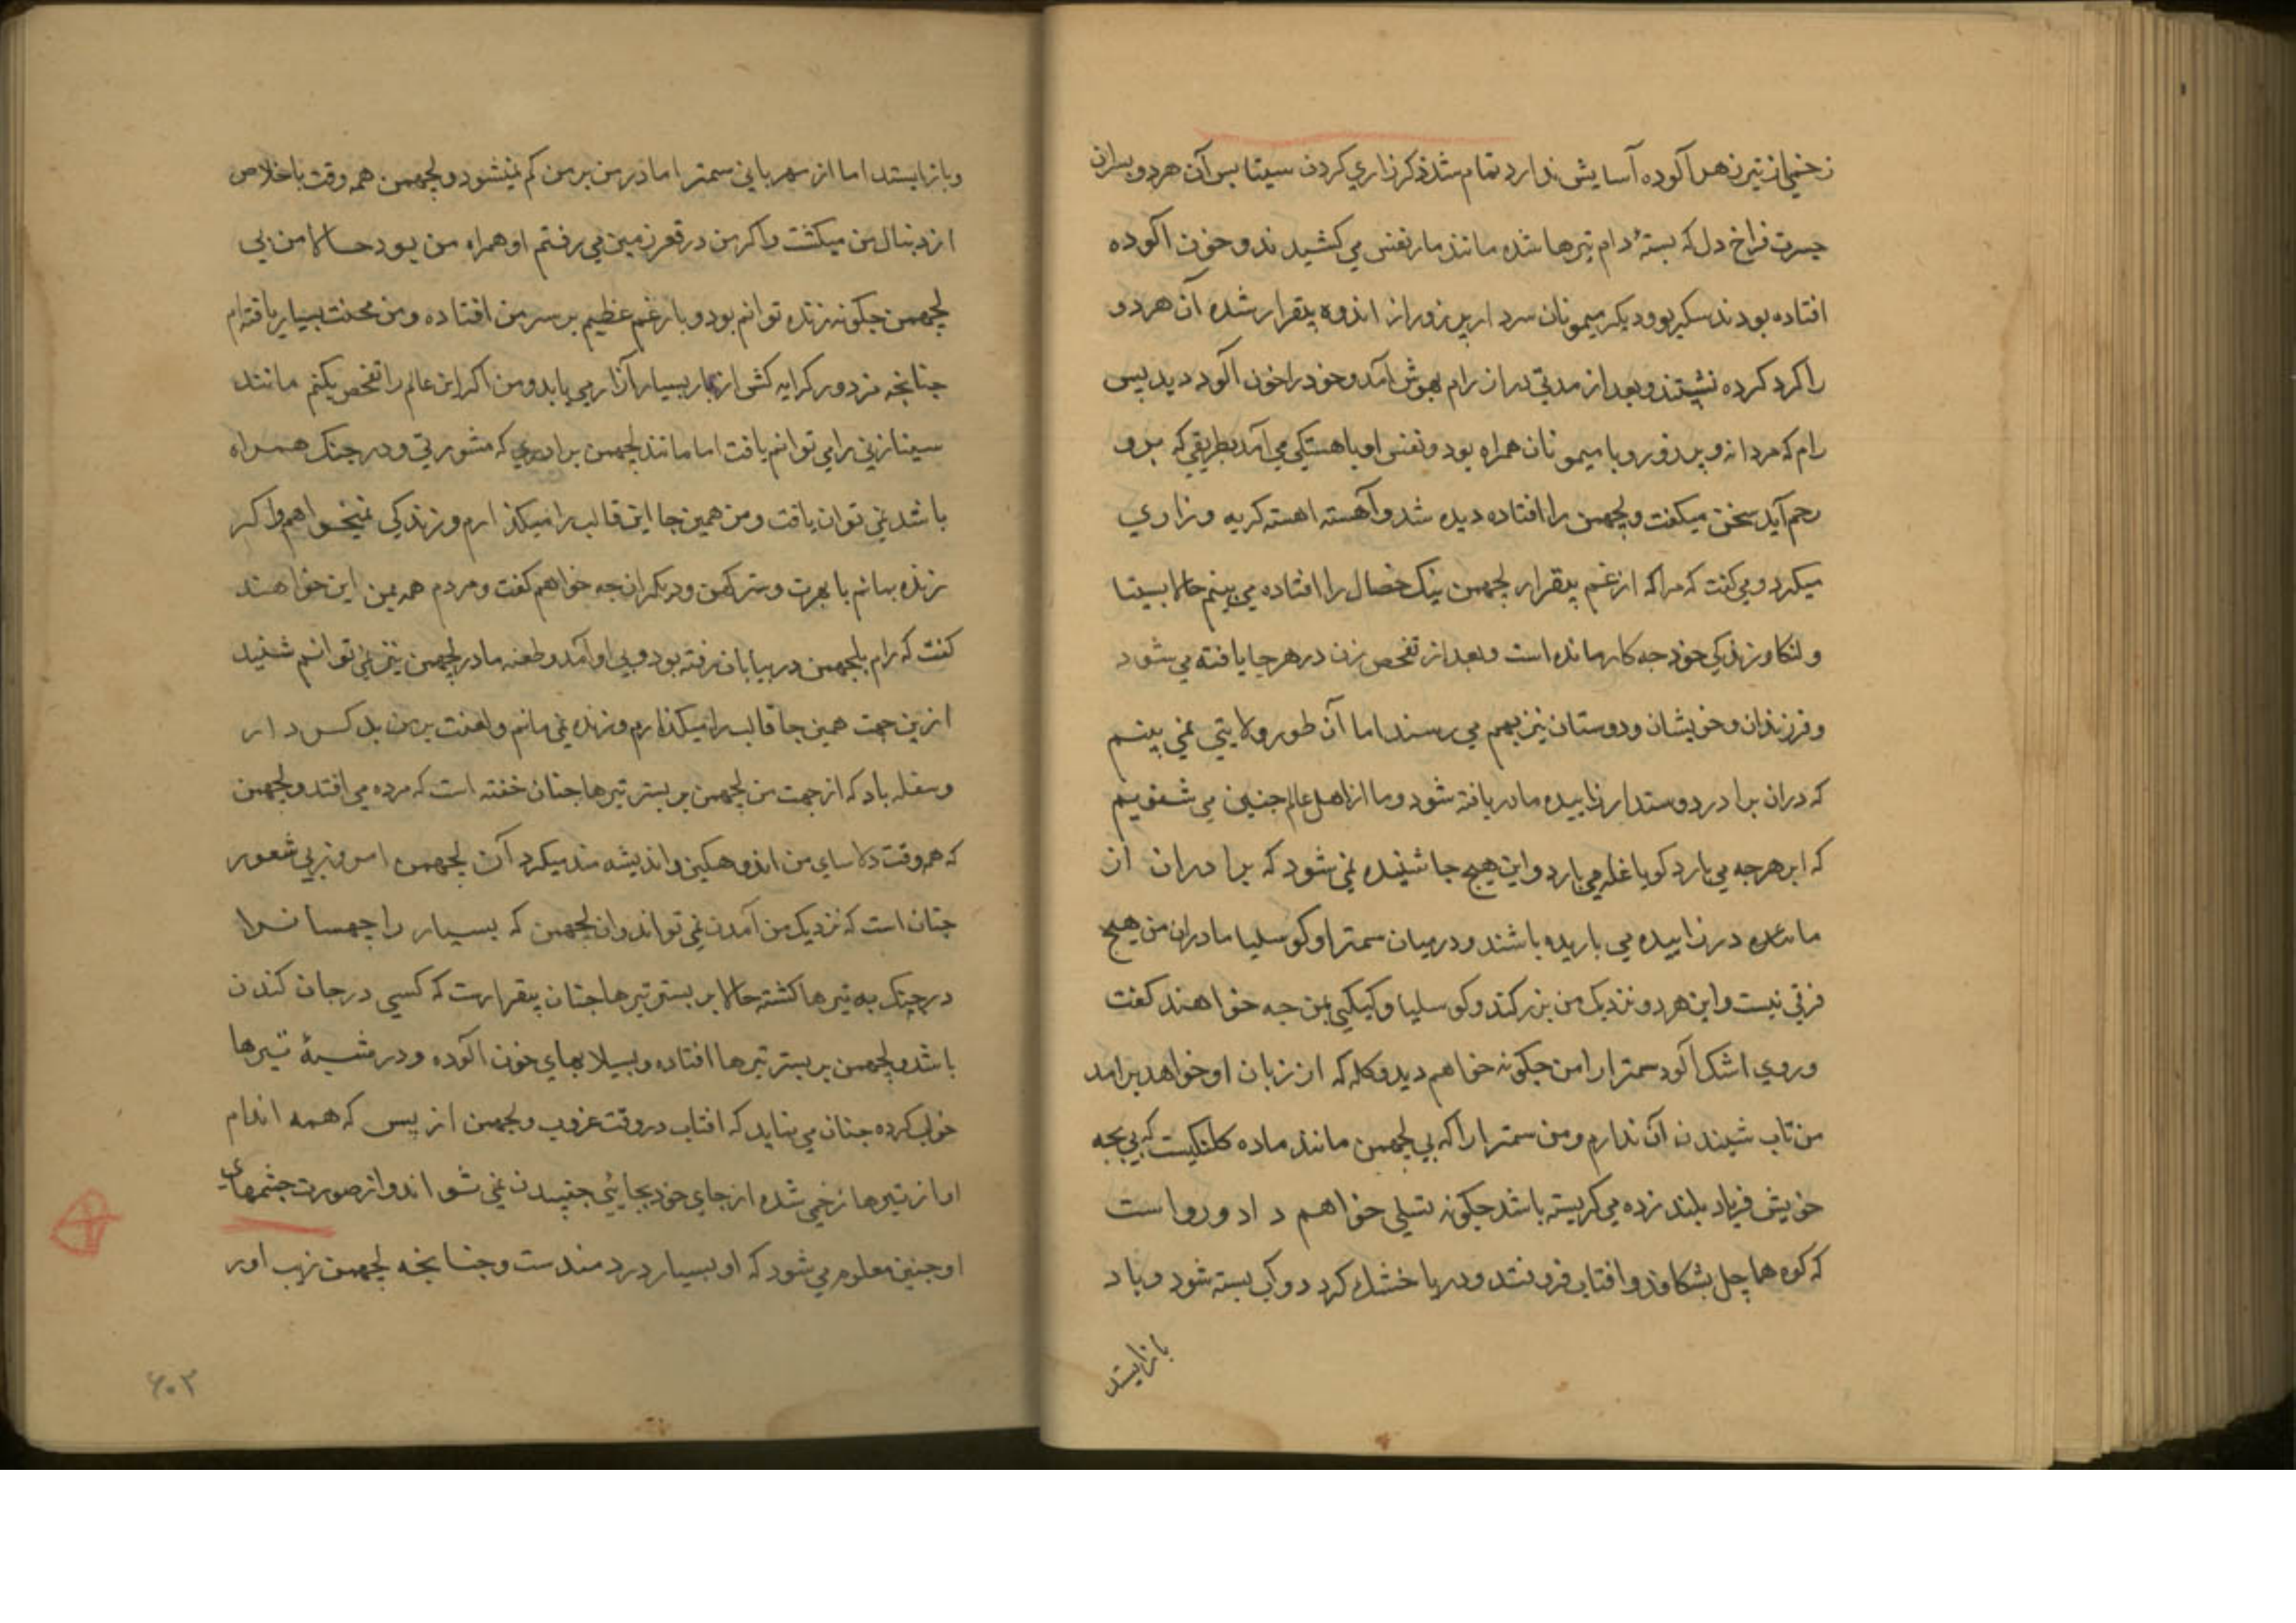 زخمی از تیر زهر آلوده آسایش ندارد تمام شد ذکر زاری کردن سیتا پس آن هر دو پسران
جسرت فراخ دل که بستهٔ دام تیرها شده مانند مار نفس می کشیدند و خون آلوده
افتاده بودند سکریو و دیکر میمونان سردار پر زور از اندوه بیقرار شده آن هر دو
را کرد کرده نشستند و بعد از مدتی دران رام بهوش آمد و خود را خون آلود دید پس
رام که مردانه و پر زور و با میمونان همراه بود و نفس او باهستکی می آمد بطریقی که برو
رحم آید سخن میکفت و لچهمن را افتاده دیده شد و آهسته اهسته کریه و زاری
میکرد و می کفت که مرا که از غم بیقرار لچهمن نیک خصال را افتاده می بینم حالا بسیتا
و لنکا و زندکی خود چه کار مانده است و بعد از تفحص زن در هر جا یافته می شود
و فرزندان و خویشان و دوستان نیز بهم می رسند اما آن طور ولایتی نمی بینم
که دران برادر دوستدار زاییده مادر یافته شود و ما از اهل عالم چنین می شنویم
که ابر هر چه می بارد کویا غله می بارد و این هیچ جا شنیده نمی شود که برادران از
ماده در زاییده می باریده باشند و درمیان سمترا و کوسلیا مادران من هیچ
فرقی نیست و این هر دو نزدیک من بزرکند و کوسلیا و کیکیی بمن چه خواهند کفت
و روی اشک آلود سمترا را من چکونه خواهم دید و کله که از زبان او خواهد برامد
من تاب شنیدن آن ندارم و من سمترا را که بی لچهمن مانند ماده کلنکیست که بی بچه
خویش فریاد بلند زده می کریسته باشد چکونه تسلی خواهم داد و رواست
که کوه ها چل بشکافد و افتاب فرو نتد و دریا خشک کردد و آب بسته شود و باد
باز ایستد
و باز ایستد اما از مهربانی سمترا مادر من بر من کم نمیشود و لچهمن همه وقت باخلاص
از دنبال من میکشت و اکر من در قعر زمین می رفتم او همراه من بود حالا من بی
لچهمن چکونه زنده توانم بود و بار غم عظیم بر سر من افتاده و من محنت بسیار یافته ام
چنانچه مزدور کرایه کش از بار بسیار آزار می یابد و من اکر این عالم را تفحص بکنم مانند
سیتا زنی را می توانم یافت اما مانند لچهمن برادری که مشورتی و در جنک همراه
باشد نمی توان یافت و من همین جا این قالب را میکذارم و زندکی نمیخواهم و اکر
زنده بمانم با بهرت و سترکهن و دیکران چه خواهم کفت و مردم همین این خواهند
کفت که رام بلچهمن در بیابان رفته بود و بی او آمد و طعنه مادر لچهمن نیز نمی توانم شنید
ازین جهت همین جا قالب را میکذارم و زنده نمی مانم و لعنت بر من بد کس دار
و سفله باد که از جهت من لچهمن بر بستر تیرها چنان خفته است که مرده می افتد و لچهمن
که هر وقت دلاسای من اندوهکین و اندیشه مند میکرد آن لچهمن امروز بی شعور
چنان است که نزدیک من آمدن نمی تواند و آن لچهمن که بسیار راچهسان را
در جنک به تیرها کشته حالا بر بستر تیرها چنان بیقرارست که کسی در جان کندن
باشد و لچهمن بر بستر تیرها افتاده و بسیلابهای خون آلوده و در مشبهٔ تیرها
خواب کرده چنان می نماید که افتاب در وقت غروب و لچهمن از بس که همه اندام
او از تیرها زخمی شده از جای خود بجایئی جنبیدن نمی تواند و از صورت چشمهای
او چنین معلوم می شود که او بسیار دردمندست و چنانچه لچهمن زیب اور
۶۰۲